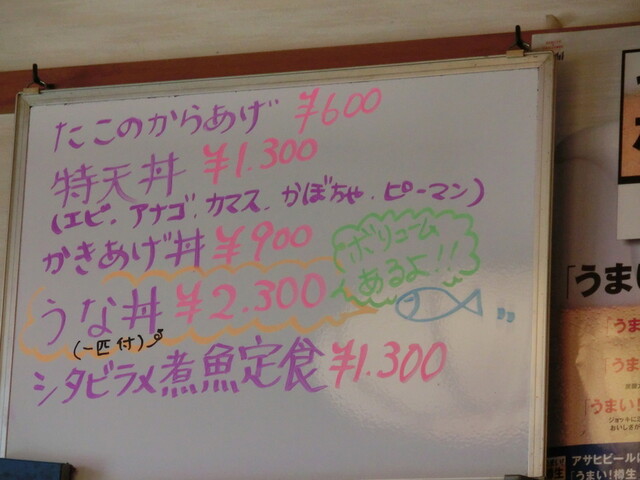 たこのからあげ ¥600
特天丼 ¥1.300
(エビ、アナゴ、カマス、かぼちゃ、ピーマン)
かきあげ丼 ¥900
ボリューム
あるよ!!
うな丼 ¥2.300
(一匹付)
シタビラメ煮魚定食 ¥1.300
「うまい
うま
うま
「うまい!
アサヒビール
「うまい!樽生